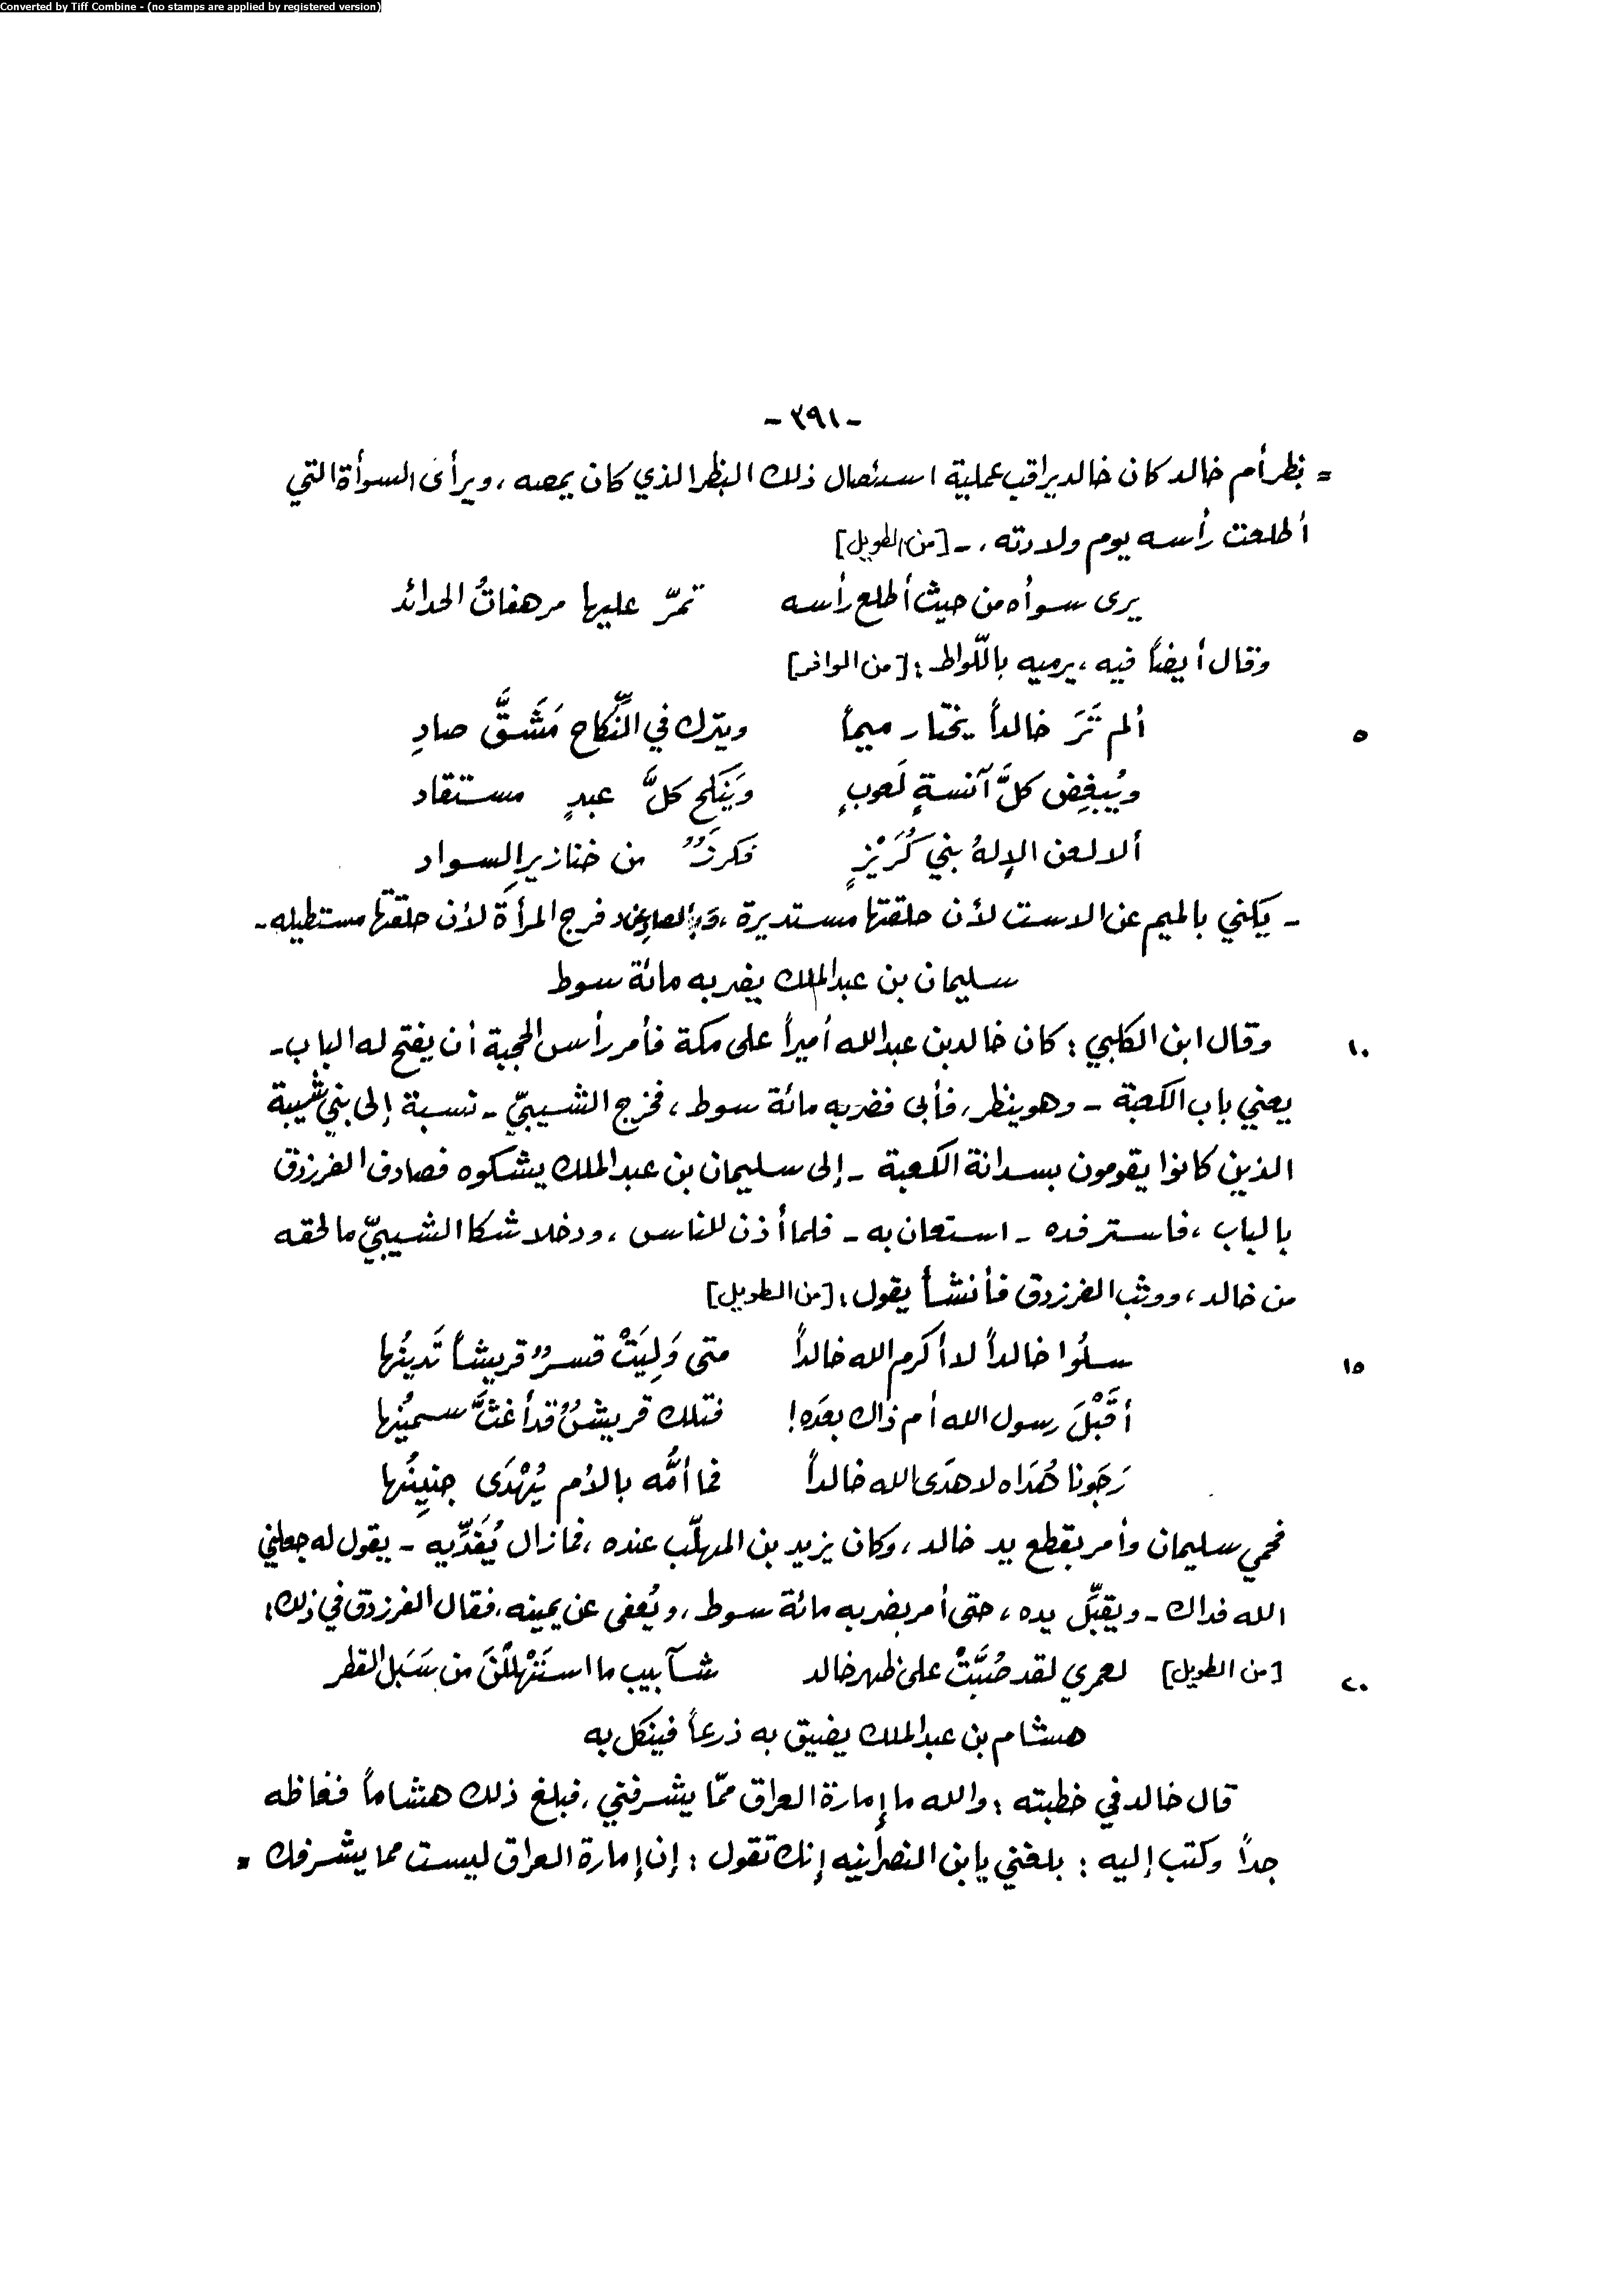 Converted by Tiff Combine - (no stamps are applied by registered version)
- ٣٩١ -
= بظر أم خالد كان خالد يراقب عملية استئصال ذلك البظر الذي كان يمصه، ويرأى السوأة التي
أطلعت رأسه يوم ولادته. - [من الطويل]
يرى سوأه من حيث أطلع رأسه تمرّ عليها مرهفاتُ الحدائد
وقال أيضاً فيه، يرميه باللّواط: [من الوافر]
٥ ألم تَرَ خالداً يختار ميماً ويترك في النِّكاح مَشَقَّ صادِ
ويُبغِض كلَّ آنسةٍ لَعوبٍ وَيَنكح كلَّ عبدٍ مستقاد
ألا لعن الإلهُ بني كُرَيْزٍ فكرزٌ من خنازيرِ السواد
- يكني بالميم عن الاست لأن حلقتها مستديرة، وبالصاد فرج المرأة لأن حلقتها مستطيله -
سليمان بن عبد الملك يضربه مائة سوط
١٠ وقال ابن الكلبي: كان خالد بن عبد الله أميراً على مكة فأمر رأس الحجبة أن يفتح له الباب -
يعني باب الكعبة - وهو ينظر، فأبى فضربه مائة سوط، فخرج الشيبيّ - نسبة إلى بني شيبة
الذين كانوا يقومون بسدانة الكعبة - إلى سليمان بن عبد الملك يشكوه فصادف الفرزدق
بالباب، فاسترفده - استعان به - فلما أذن للناس، ودخلا شكا الشيبيّ ما لحقه
من خالد، ووثب الفرزدق فأنشأ يقول: [من الطويل]
١٥ سلُوا خالداً لا أكرم الله خالداً متى وَلِيَتْ قسرٌ قريشاً تَدينُها
أقَبْلَ رسول الله أم ذاك بعَده! فتلك قريشٌ قد أغثَّ سمينُها
رَجَونا هُدَاه لا هدَى الله خالداً فما أمُّه بالأم يُهْدَى جنينُها
فحمي سليمان وأمر بقطع يد خالد، وكان يزيد بن المهلّب عنده، فما زال يُفَدِّيه - يقول له جعلني
الله فداك - ويقبِّل يده، حتى أمر بضربه مائة سوط، ويُعفى عن يمينه، فقال الفرزدق في ذلك:
٢٠ [من الطويل] لعمري لقد صُبَّتْ على ظهر خالد شآبيب ما استَهْلَلْنَ من سَبَل القطر
هشام بن عبد الملك يضيق به ذرعاً فينكل به
قال خالد في خطبته: والله ما إمارة العراق ممّا يشرفني، فبلغ ذلك هشاماً فغاظه
جداً وكتب إليه: بلغني يا بن النصرانيه إنك تقول: إن إمارة العراق ليست مما يشرفك =